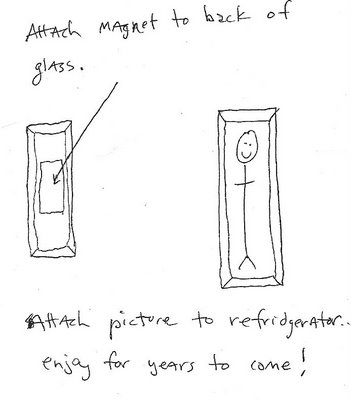 Attach magnet to back of
glass.
Attach picture to refridgerator..
enjoy for years to come!